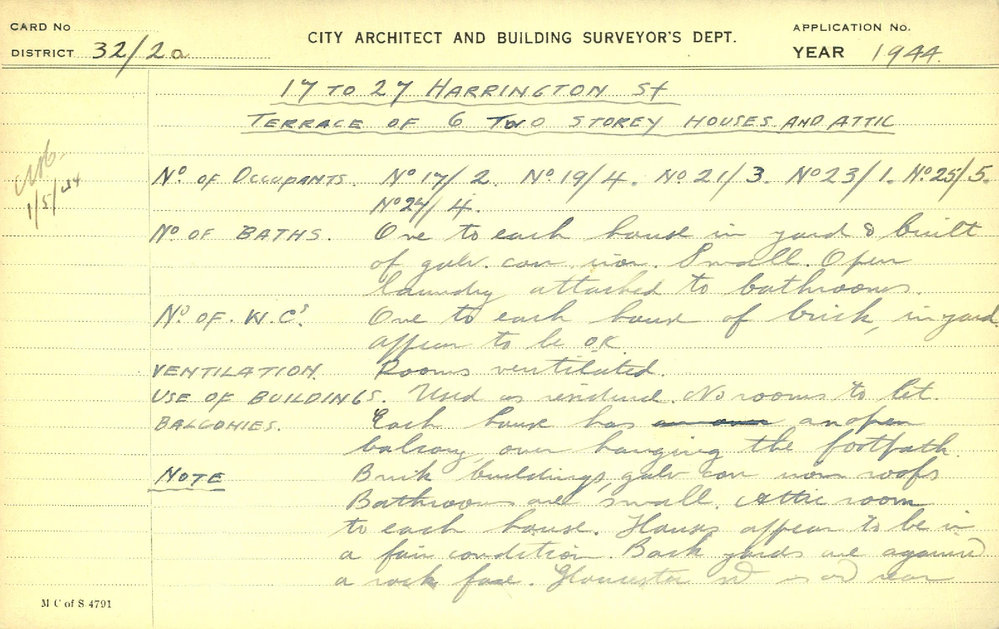 CARD No
DISTRICT 32/2a
CITY ARCHITECT AND BUILDING SURVEYOR'S DEPT.
APPLICATION No.
YEAR 1944.
17 TO 27 HARRINGTON St
TERRACE OF 6 TWO STOREY HOUSES AND ATTIC
1/5/44
No OF OCCUPANTS. No 17/2. No 19/4. No 21/3. No 23/1. No 25/5.
No 27/4.
No OF BATHS. One to each house in yard & built
of galv. corr. iron. Small. Open
laundry attached to bathrooms.
No OF W.C's. One to each house of brick, in yard
appear to be OK.
VENTILATION. Rooms ventilated.
USE OF BUILDINGS. Used as residence. No rooms to let.
BALCONIES. Each house has an open
balcony over hanging the footpath.
NOTE Brick buildings, galv corr iron roofs
Bathrooms are small. Attic room
to each house. Houses appear to be in
a fair condition. Back yards are against
a rock face. Gloucester St is on rear
M C of S 4791